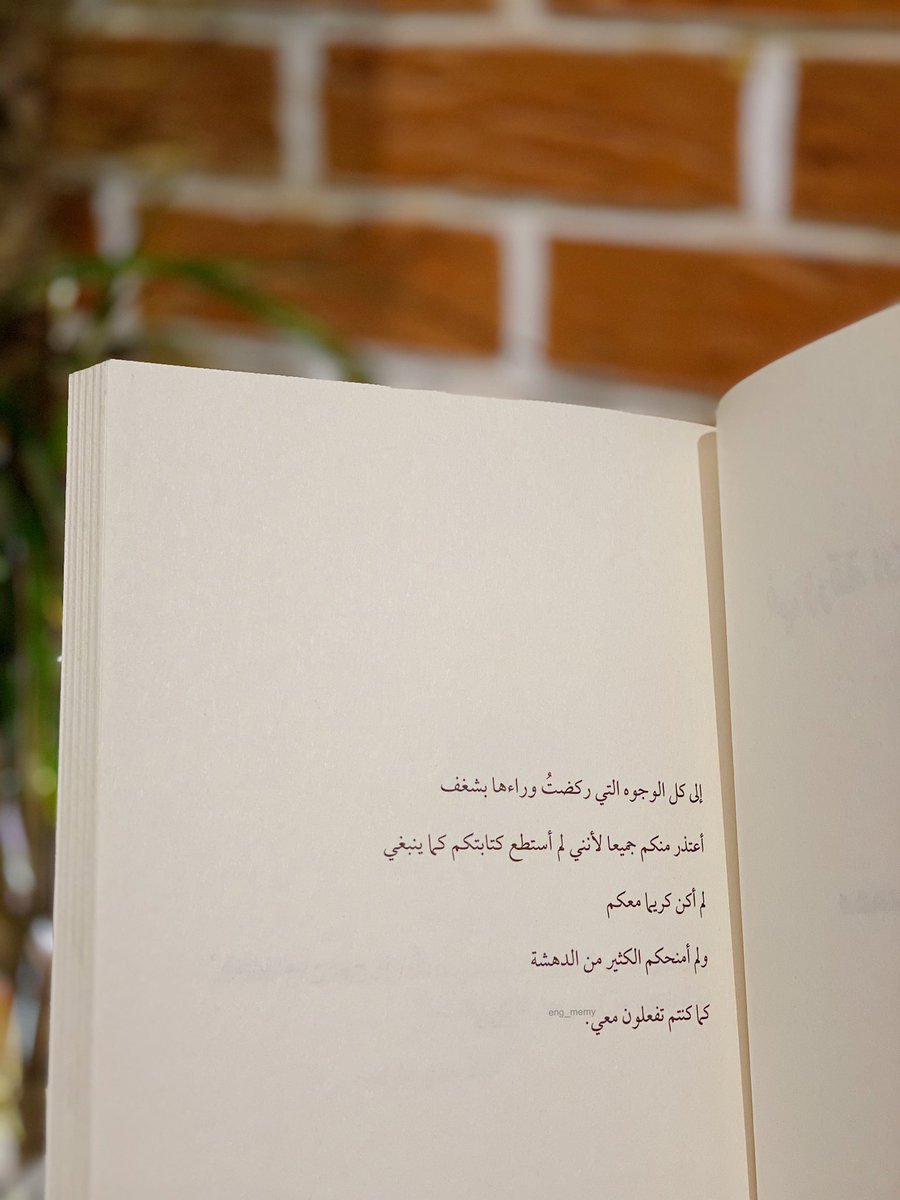 إلى كل الوجوه التي ركضتُ وراءها بشغف
أعتذر منكم جميعا لأنني لم أستطع كتابتكم كما ينبغي
لم أكن كريما معكم
ولم أمنحكم الكثير من الدهشة
كما كنتم تفعلون معي.
eng_memy